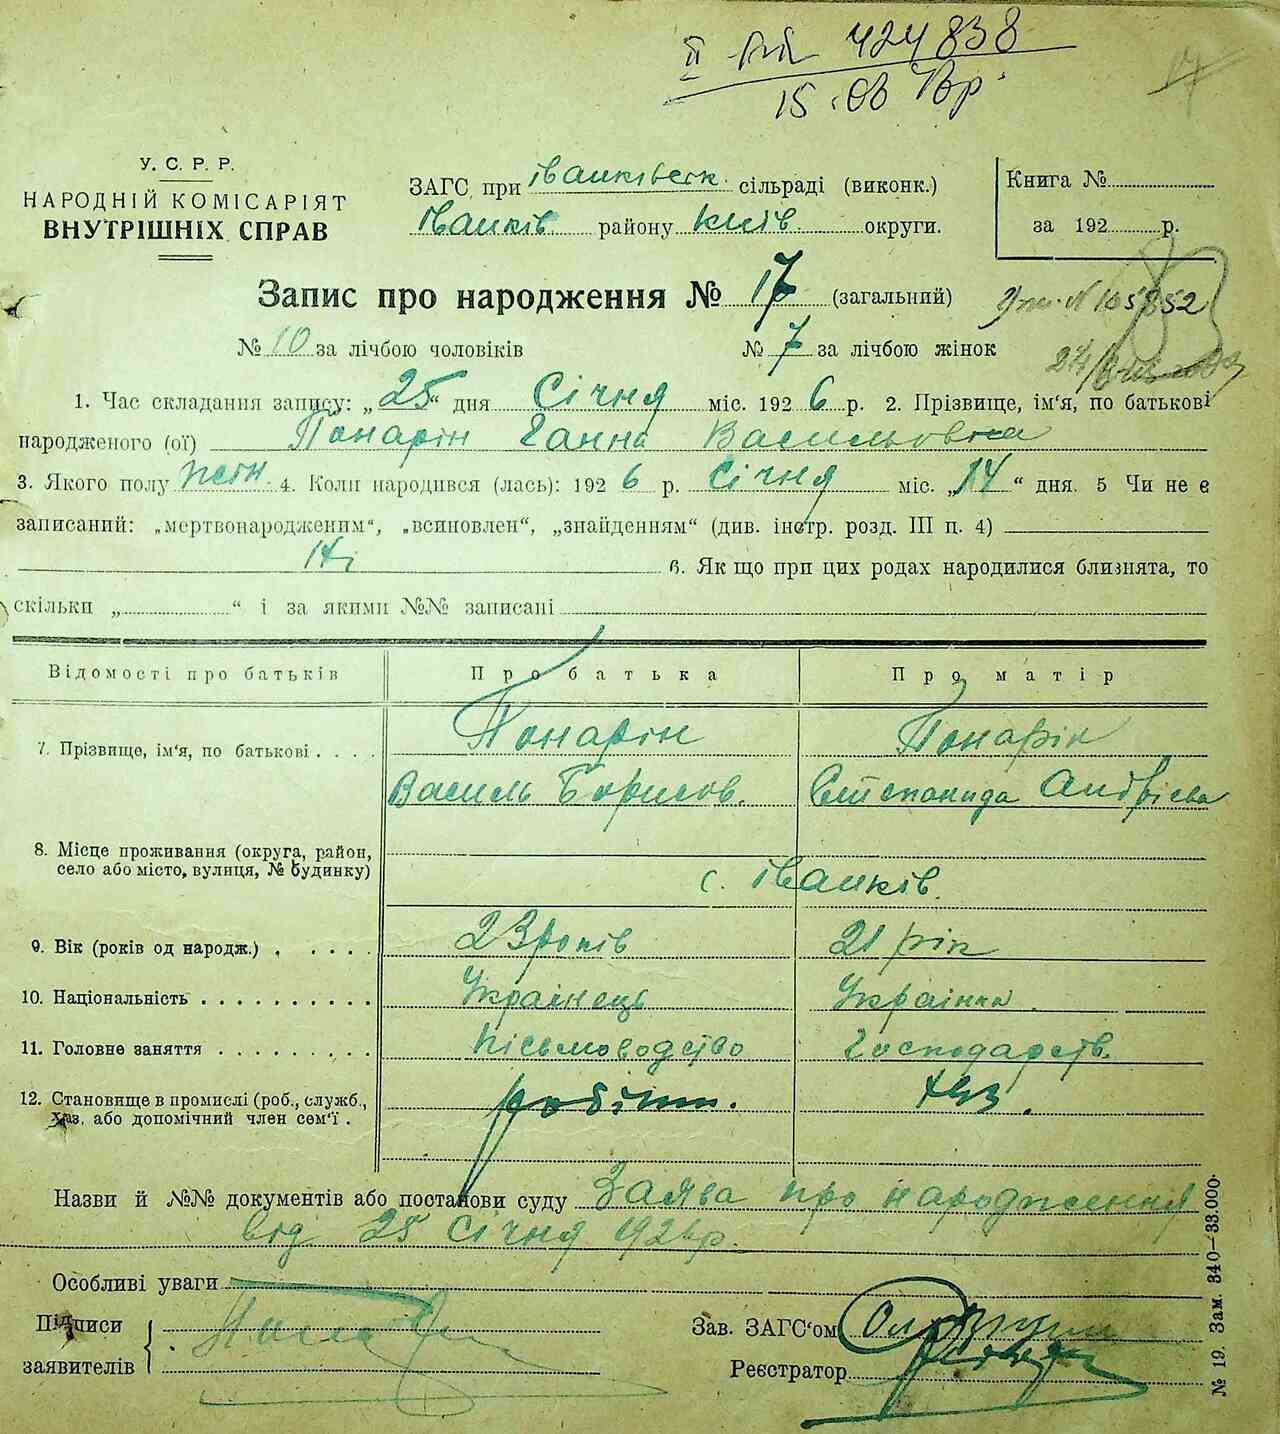 424838
15.08
17
У. С. Р. Р.
НАРОДНІЙ КОМІСАРІЯТ
ВНУТРІШНІХ СПРАВ
ЗАГС при Іванківськ. сільраді (виконк.)
Іванків. району Київ. округи.
Книга №
за 192 р.
Запис про народження № 17 (загальний)
№ 10 за лічбою чоловіків № 7 за лічбою жінок
1. Час складання запису: „25“ дня Січня міс. 1926 р. 2. Прізвище, ім'я, по батькові
народженого (ої) Понарін Ганна Васильовна
3. Якого полу жін. 4. Коли народився (лась): 1926 р. Січня міс. „14“ дня. 5 Чи не є
записаний: „мертвонародженим“, „всиновлен“, „знайденням“ (див. інстр. розд. III п. 4)
Ні 6. Як що при цих родах народилися близнята, то
скільки „ “ і за якими №№ записані
Відомості про батьків Про батька Про матір
7. Прізвище, ім'я, по батькові . . . . Понарін Понарін
Василь Борисов. Степанида Андрієва
8. Місце проживання (округа, район,
село або місто, вулиця, № будинку) с. Іванків.
9. Вік (років од народж.) . . . . . 23 років 21 рік
10. Національність . . . . . . . . . . Українець Українка
11. Головне заняття . . . . . . . . . Пісьмоводство Господарств.
12. Становище в промислі (роб., служб.,
хаз. або допомічний член сем'ї . робітн.
Назви й №№ документів або постанови суду Заява про народження
від 25 Січня 1926 р.
Особливі уваги
Підписи
заявителів
Зав. ЗАГС'ом
Реєстратор
№ 19. Зам. 340—33.000.